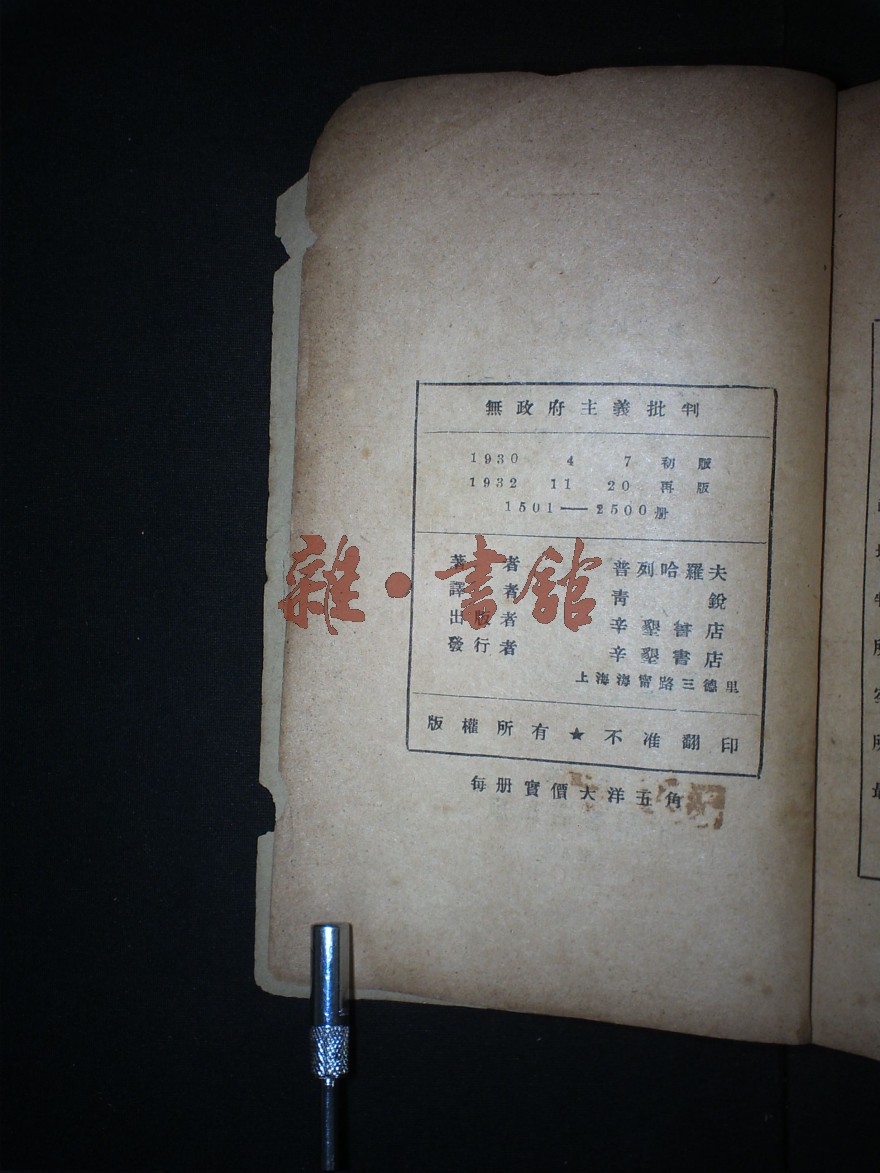 無政府主義批判
1930 4 7 初版
1932 11 20 再版
1501——2500册
著者 普列哈羅夫
譯者 青銳
出版者 辛墾書店
發行者 辛墾書店
上海海甯路三德里
版權所有★不准翻印
每册實價大洋五角
雜·書舘